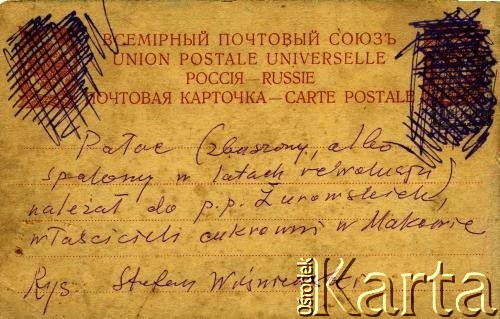 ВСЕМІРНЫЙ ПОЧТОВЫЙ СОЮЗЪ
UNION POSTALE UNIVERSELLE
РОССІЯ—RUSSIE
ПОЧТОВАЯ КАРТОЧКА—CARTE POSTALE
Pałac (zburzony, albo
spalony w latach rewolucji)
należał do p.p. Żuromskich,
właścicieli cukrowni w Makowie
Rys. Stefan Wiśniewski
Ośrodek
Karta